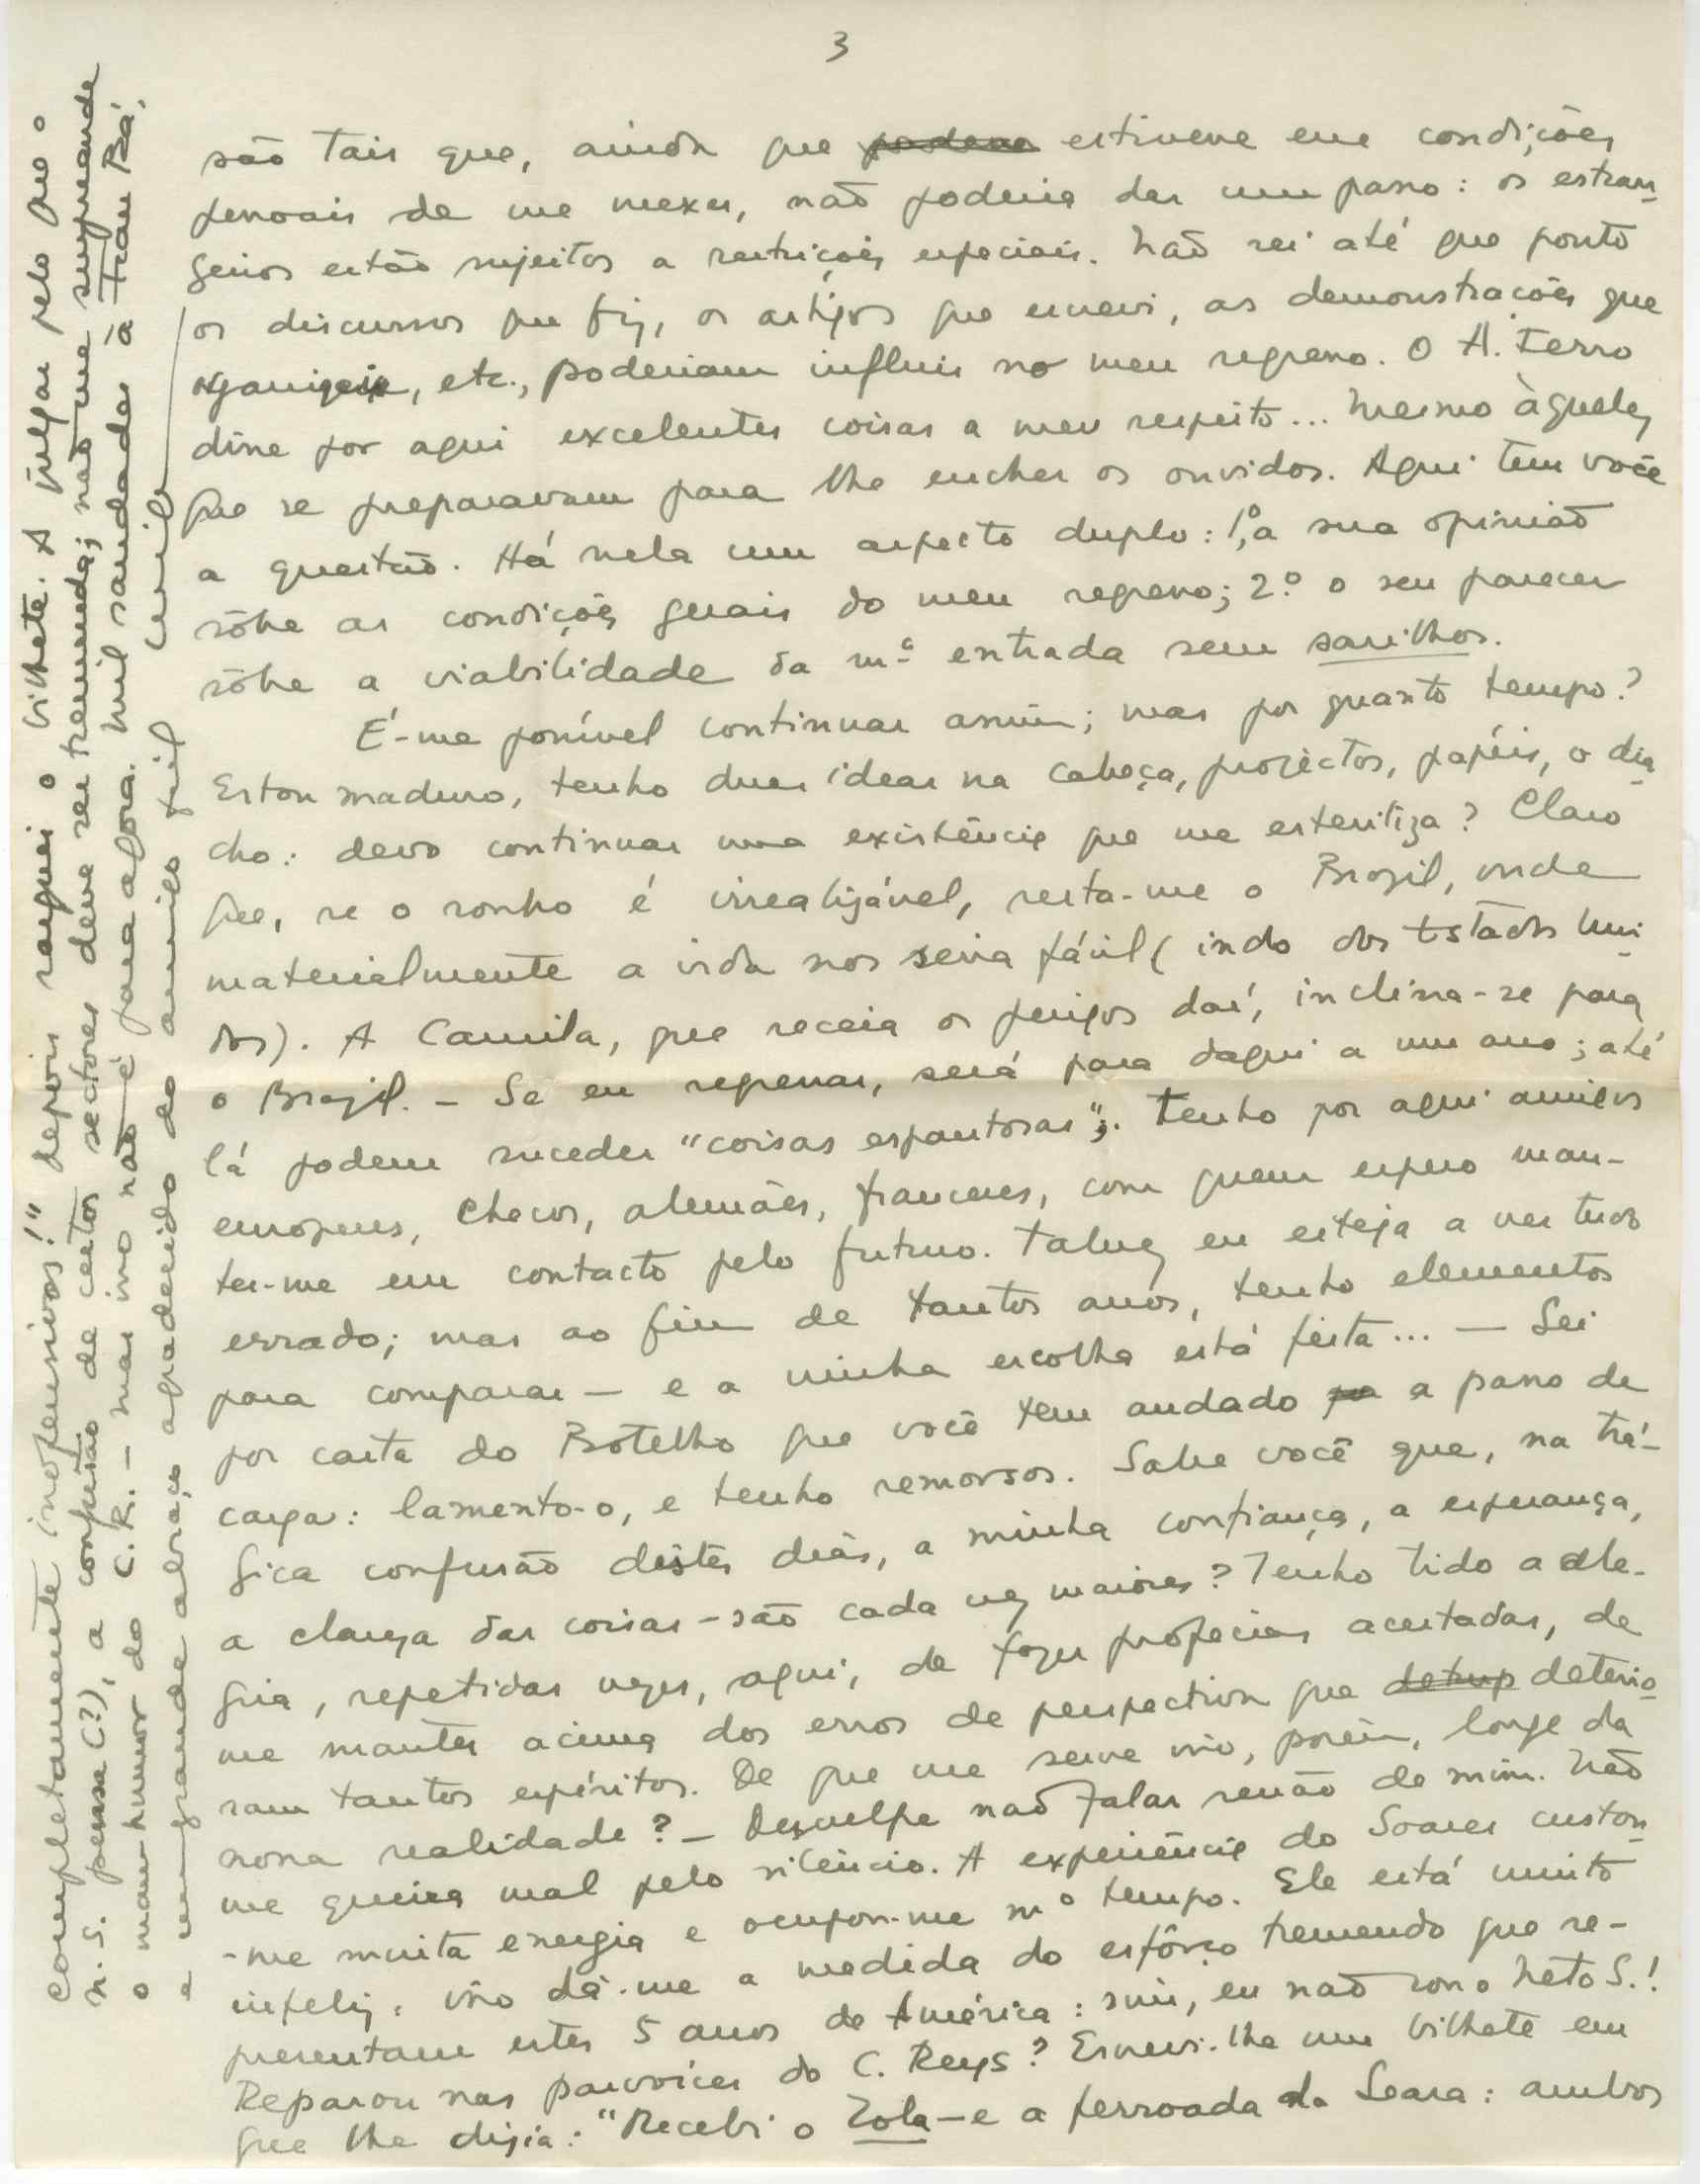 3
são tais que, ainda que estivesse em condições
pessoais de me mexer, não poderia dar um passo: os estran-
geiros estão sujeitos a restrições especiais. Não sei até que ponto
os discursos que fiz, os artigos que escrevi, as demonstrações que
organizei, etc., poderiam influir no meu regresso. O A. Ferro
disse por aqui excelentes coisas a meu respeito... mesmo àqueles
que se preparavam para lhe encher os ouvidos. Aqui tem você
a questão. Há nela um aspecto duplo: 1º, a sua opinião
sôbre as condições gerais do meu regresso; 2.º o seu parecer
sôbre a viabilidade da m.ª entrada sem sarilhos.
É-me possível continuar assim; mas por quanto tempo?
Estou maduro, tenho duas ideas na cabeça, projectos, papéis, o dia-
cho: devo continuar uma existência que me esteriliza? Claro
que, se o sonho é irrealizável, resta-me o Brazil, onde
materialmente a vida nos seria fácil (indo dos Estados Uni-
dos). A Camila, que receia os perigos daí, inclina-se para
o Brazil. - Se eu regressar, será para daqui a um ano; até
lá podem suceder "coisas espantosas". Tenho por aqui amigos
europeus, checos, alemães, franceses, com quem espero man-
ter-me em contacto pelo futuro. Talvez eu esteja a ver tudo
errado; mas ao fim de tantos anos, tenho elementos
para comparar — e a minha escolha está feita... — Sei
por carta do Botelho que você tem andado a passo de
carga: lamento-o, e tenho remorsos. Sabe você que, na trá-
gica confusão dêstes dias, a minha confiança, a esperança,
a clareza das coisas - são cada vez maiores? Tenho tido a ale-
gria, repetidas vezes, aqui, de fazer profecias acertadas, de
me manter acima dos erros de perspectiva que deterio-
ram tantos espíritos. De que me serve isso, porém, longe da
nossa realidade? - Desculpe não falar senão de mim. Não
me queira mal pelo silêncio. A experiência do Soares custou-
-me muita energia e ocupou-me m.º tempo. Ele está muito
infeliz. isso dá-me a medida do esfôrço tremendo que re-
presentam estes 5 anos de América: sim, eu não sou o Neto S.!
Reparou nas parvoíces do C. Reys? Escrevi-lhe um bilhete em
que lhe dizia: "Recebi o Zola — e a ferroada da Seara: ambos
completamente inofensivos!" depois rasguei o bilhete. A julgar pelo que o
N. S. pensa (?), a confusão de certos sectores deve ser tremenda; não me surpreende
o mau-humor do C. R. - mas isso não é para agora. Mil saudades à Frau Rá,
e um grande abraço agradecido do amigo fiel